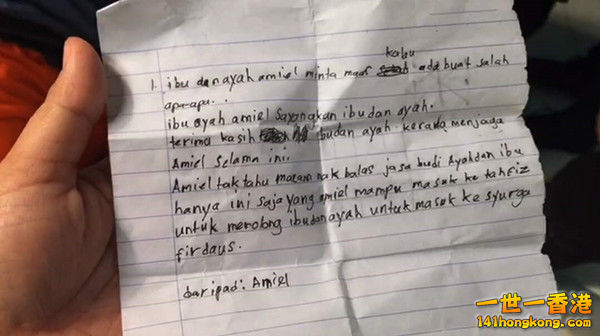 kalau
1. ibu dan ayah amiel minta maaf ada buat salah
apa-apa..
ibu ayah amiel sayangkan ibu dan ayah.
terima kasih ibu dan ayah kerada menjaga
Amiel selama ini.
Amiel tak tahu macam nak balas jasa budi Ayah dan ibu
hanya ini saja yang amiel mampu masuk ke tahfiz
untuk menolong ibu dan ayah untuk masuk ke syurga
firdaus.
daripad: Amiel
一世一香港
141hongkong.com